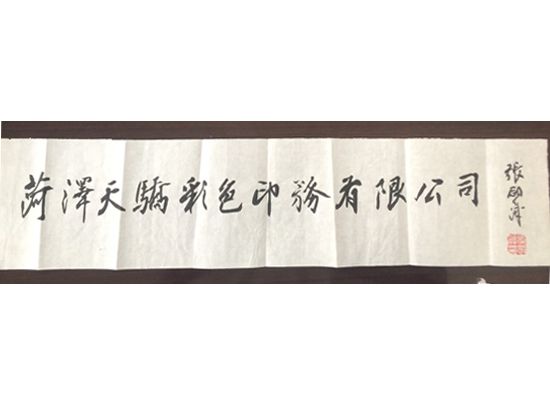 菏澤天驕彩色印務有限公司
張